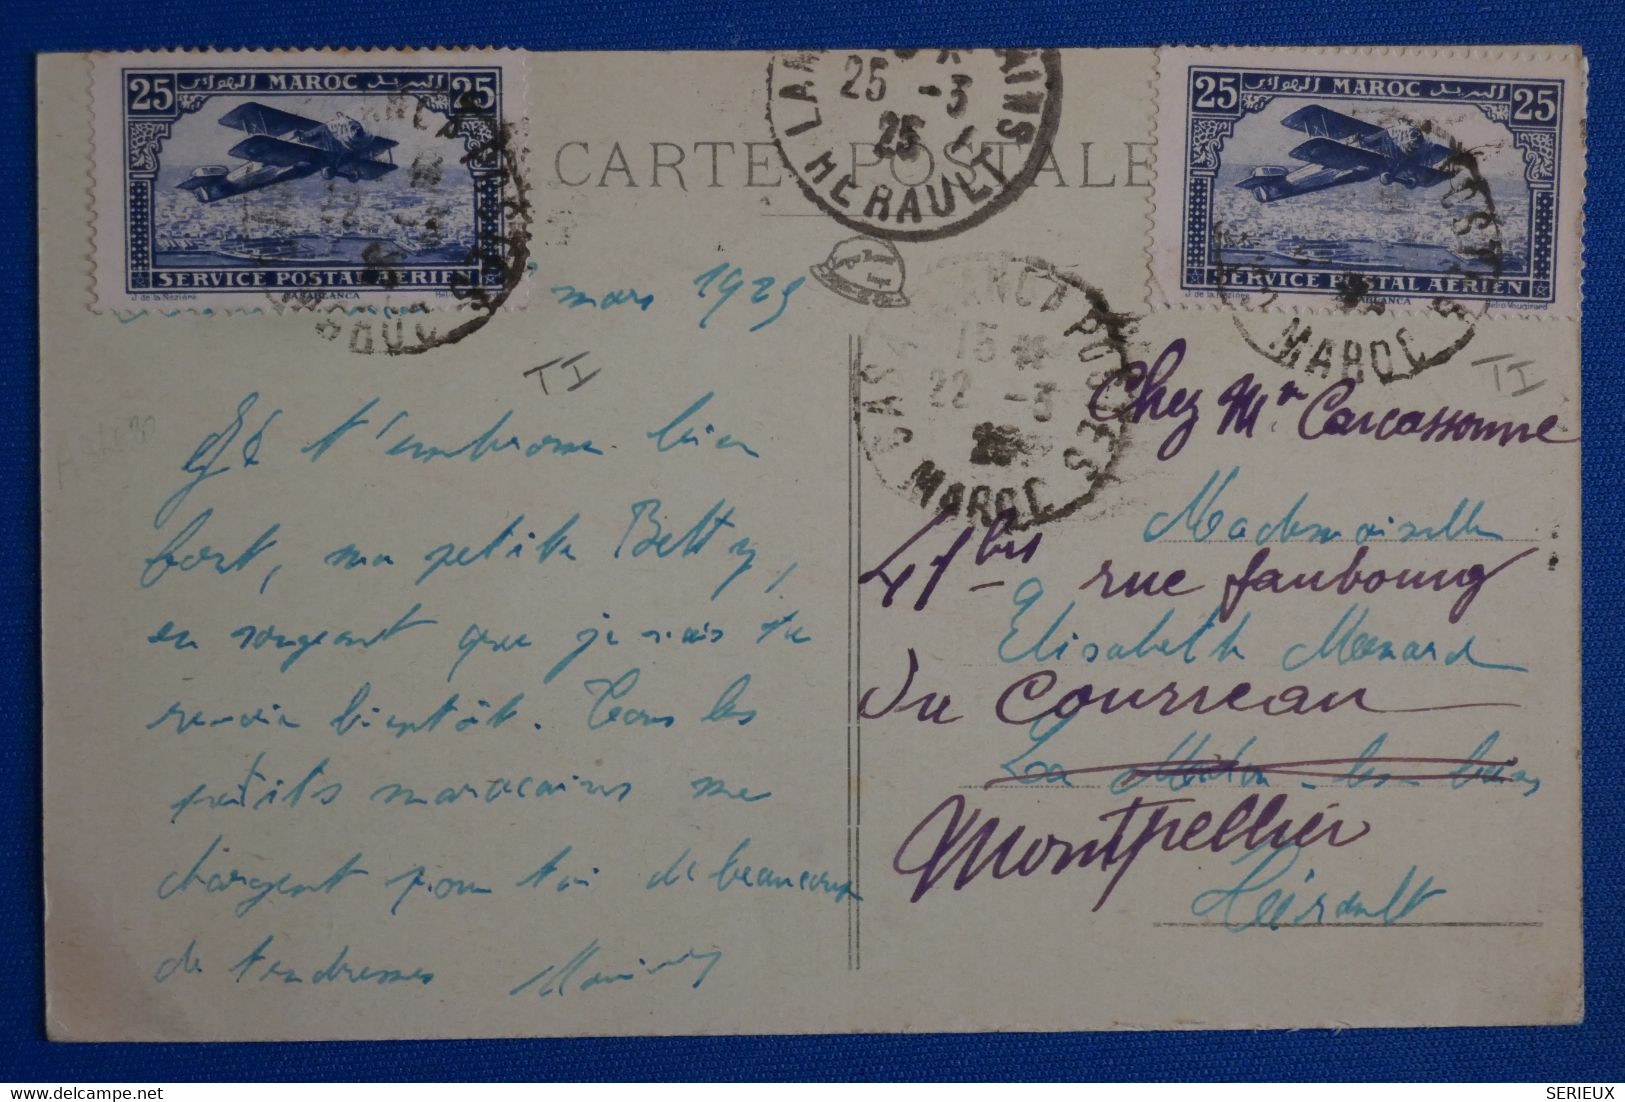 25 MAROC البريد الهوائي 25
SERVICE POSTAL AÉRIEN
J. de la Nézière CASABLANCA
25 MAROC البريد الهوائي 25
SERVICE POSTAL AÉRIEN
J. de la Nézière CASABLANCA Hélio Vaugirard
CARTE POSTALE
25 -3
25
HERAULT
CASABLANCA POSTES
15
22 -3
25
MAROC
MAROC
MAROC
mars 1925
TI
TI
t'embrasse bien
fort, ma petite Betty,
en songeant que je vais te
revoir bientôt. Tous les
petits marocains me
chargent pour toi de beaucoup
de tendresses
Chez Mr Carcassonne
Mademoiselle
41 bis rue faubourg
Elisabeth Menard
du Courreau
La les bains
Montpellier
Hérault
SERIEUX